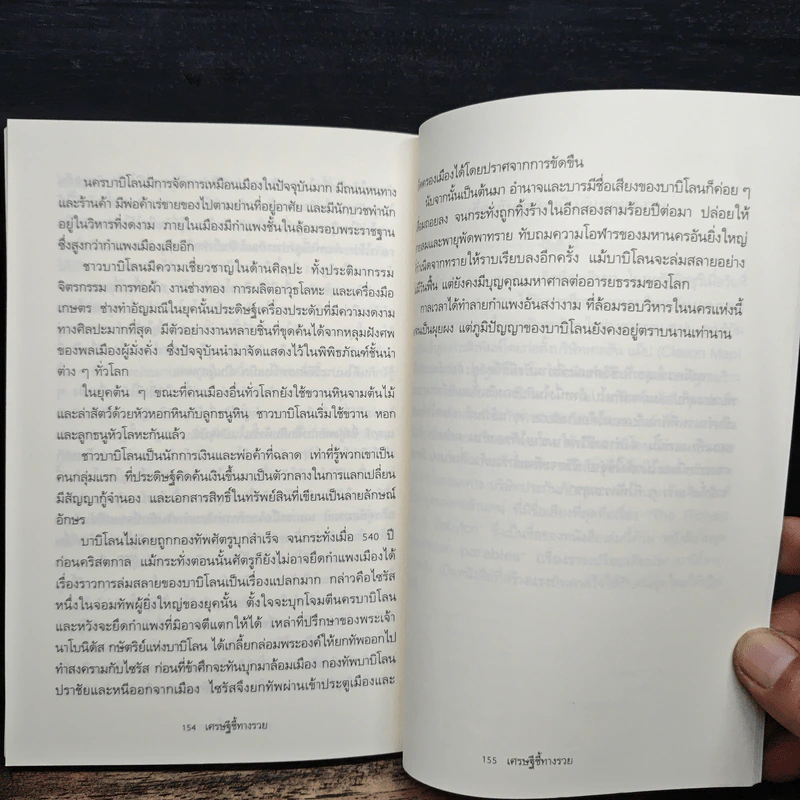 นครบาบิโลนมีการจัดการเหมือนเมืองในปัจจุบันมาก มีถนนหนทาง
และร้านค้า มีพ่อค้าเร่ขายของไปตามย่านที่อยู่อาศัย และมีนักบวชพำนัก
อยู่ในวิหารที่งดงาม ภายในเมืองมีกำแพงชั้นในล้อมรอบพระราชฐาน
ซึ่งสูงกว่ากำแพงเมืองเสียอีก
ชาวบาบิโลนมีความเชี่ยวชาญในด้านศิลปะ ทั้งประติมากรรม
จิตรกรรม การทอผ้า งานช่างทอง การผลิตอาวุธโลหะ และเครื่องมือ
เกษตร ช่างทำอัญมณีในยุคนั้นประดิษฐ์เครื่องประดับที่มีความงดงาม
ทางศิลปะมากที่สุด มีตัวอย่างงานหลายชิ้นที่ขุดค้นได้จากหลุมฝังศพ
ของพลเมืองผู้มั่งคั่ง ซึ่งปัจจุบันนำมาจัดแสดงไว้ในพิพิธภัณฑ์ชั้นนำ
ต่าง ๆ ทั่วโลก
ในยุคต้น ๆ ขณะที่คนเมืองอื่นทั่วโลกยังใช้ขวานหินจามต้นไม้
และล่าสัตว์ด้วยหัวหอกหินกับลูกธนูหิน ชาวบาบิโลนเริ่มใช้ขวาน หอก
และลูกธนูหัวโลหะกันแล้ว
ชาวบาบิโลนเป็นนักการเงินและพ่อค้าที่ฉลาด เท่าที่รู้พวกเขาเป็น
คนกลุ่มแรก ที่ประดิษฐ์คิดค้นเงินขึ้นมาเป็นตัวกลางในการแลกเปลี่ยน
มีสัญญากู้จำนอง และเอกสารสิทธิ์ในทรัพย์สินที่เขียนเป็นลายลักษณ์
อักษร
บาบิโลนไม่เคยถูกกองทัพศัตรูบุกสำเร็จ จนกระทั่งเมื่อ 540 ปี
ก่อนคริสตกาล แม้กระทั่งตอนนั้นศัตรูก็ยังไม่อาจยึดกำแพงเมืองได้
เรื่องราวการล่มสลายของบาบิโลนเป็นเรื่องแปลกมาก กล่าวคือไซรัส
หนึ่งในจอมทัพผู้ยิ่งใหญ่ของยุคนั้น ตั้งใจจะบุกโจมตีนครบาบิโลน
และหวังจะยึดกำแพงที่มิอาจตีแตกให้ได้ เหล่าที่ปรึกษาของพระเจ้า
นาโบนิดัส กษัตริย์แห่งบาบิโลน ได้เกลี้ยกล่อมพระองค์ให้ยกทัพออกไป
ทำสงครามกับไซรัส ก่อนที่ข้าศึกจะทันบุกมาล้อมเมือง กองทัพบาบิโลน
ปราชัยและหนีออกจากเมือง ไซรัสจึงยกทัพผ่านเข้าประตูเมืองและ
154 เศรษฐีชี้ทางรวย
ครองเมืองได้โดยปราศจากการขัดขืน
นับจากนั้นเป็นต้นมา อำนาจและบารมีชื่อเสียงของบาบิโลนก็ค่อย ๆ
ถอยลง จนกระทั่งถูกทิ้งร้างในอีกสองสามร้อยปีต่อมา ปล่อยให้
ลมและพายุพัดพาทราย ทับถมความโอฬารของมหานครอันยิ่งใหญ่
จากทรายให้ราบเรียบลงอีกครั้ง แม้บาบิโลนจะล่มสลายอย่าง
แต่ยังคงมีบุญคุณมหาศาลต่ออารยธรรมของโลก
กาลเวลาได้ทำลายกำแพงอันสง่างาม ที่ล้อมรอบวิหารในนครแห่งนี้
เป็นผุยผง แต่ภูมิปัญญาของบาบิโลนยังคงอยู่ตราบนานเท่านาน
155 เศรษฐีชี้ทางรวย